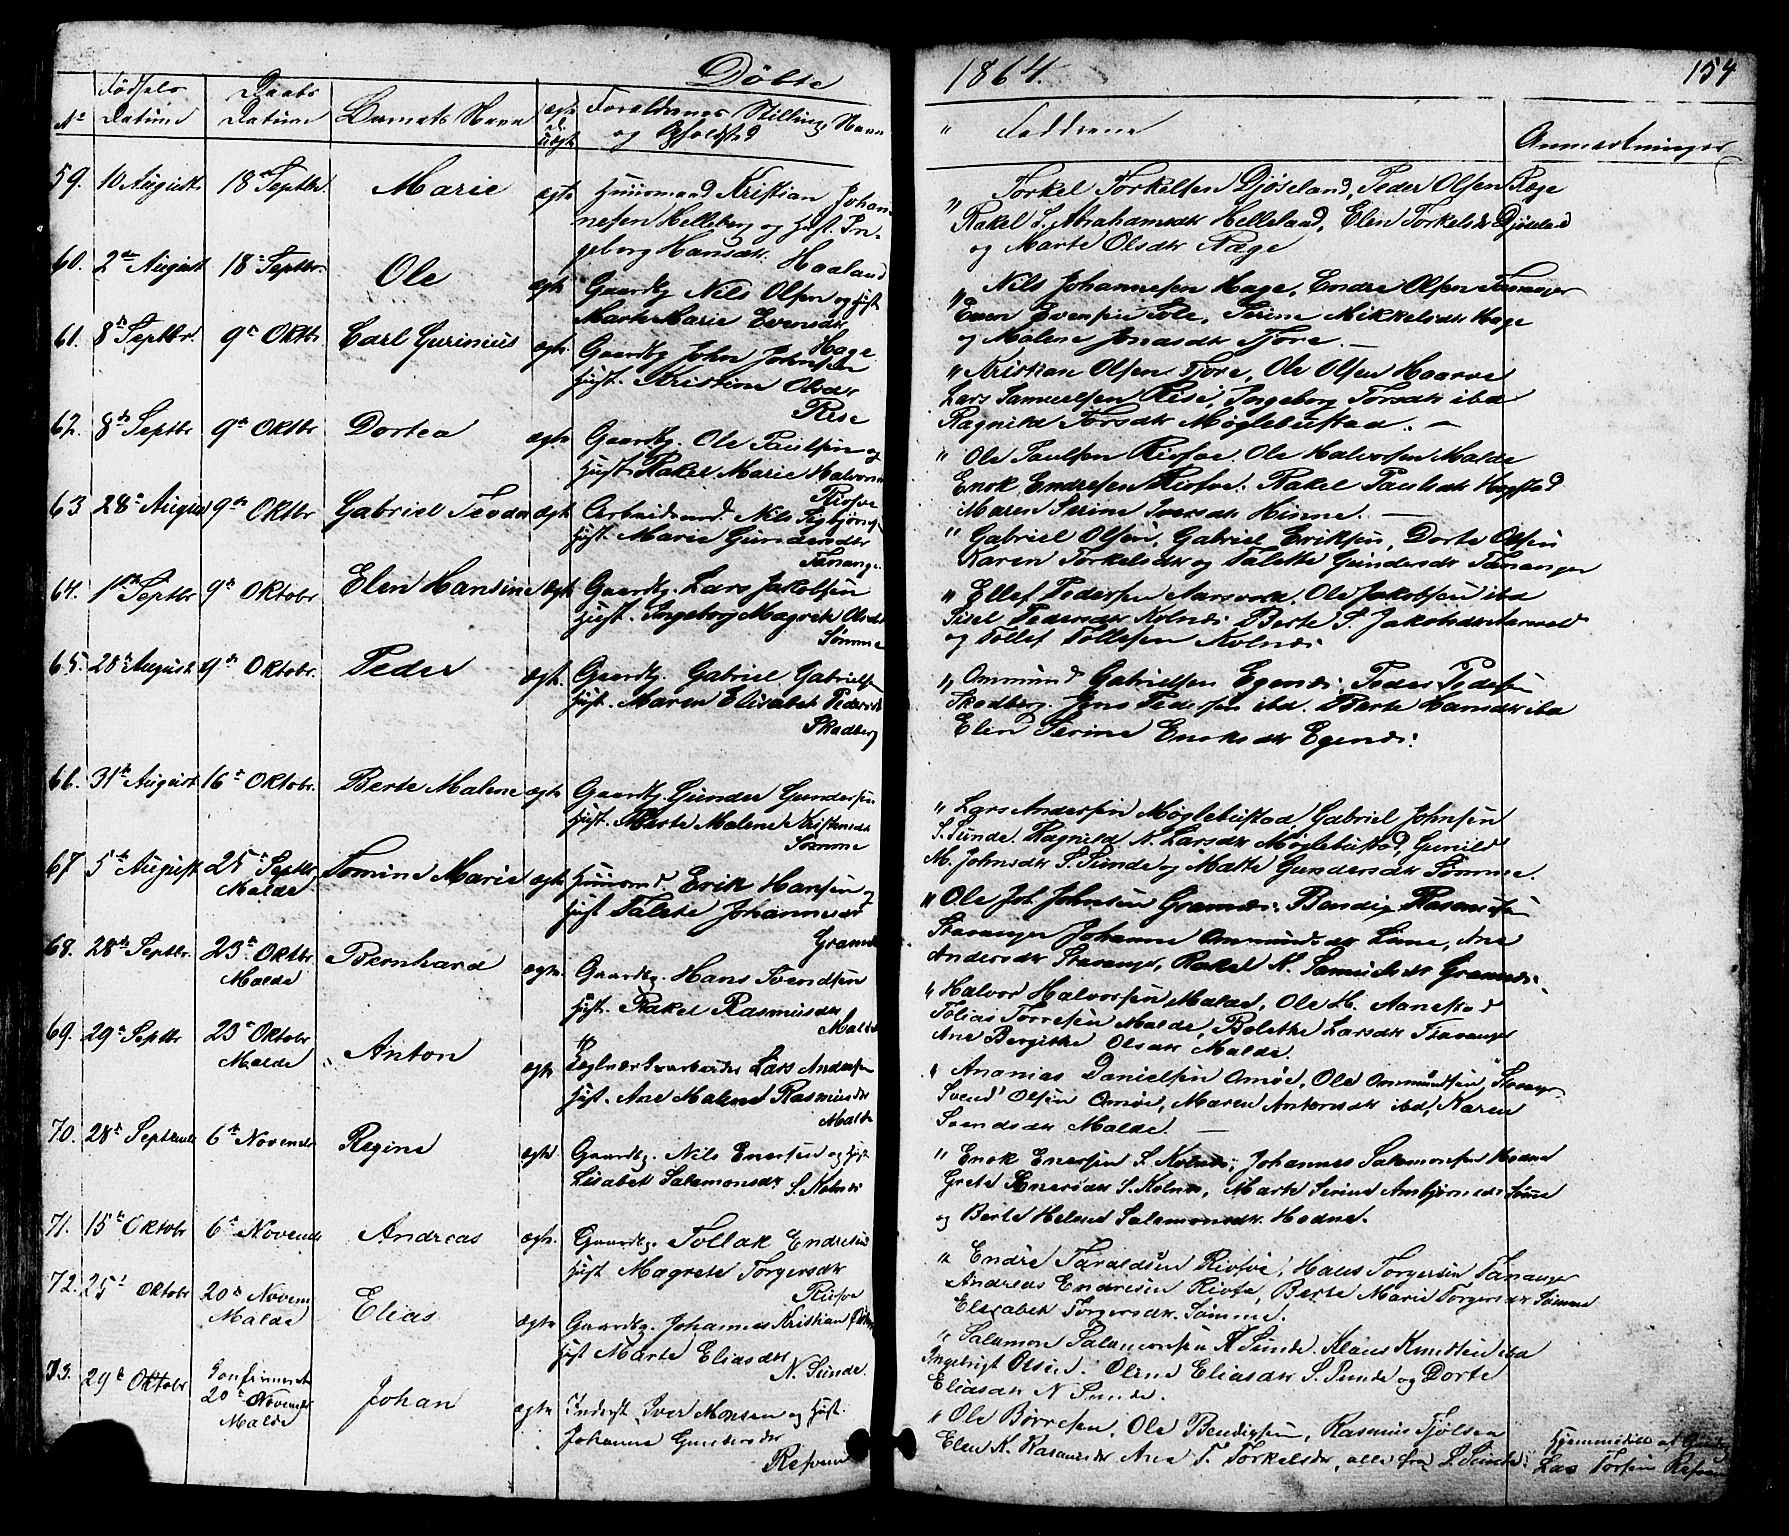 Döbte 1864. 154
No Födsels Datum Daabs Datum Barnets Navn ægte el. uægte Forældrenes Stilling, Navn og Opholdsted Faddrene Anmærkninger
59. 10 August 18 Septbr. Marie ægte Huusmand Kristian Johan-
nesen Helleberg og Hust. In-
geborg Hansdtr. Haaland
" Torkel Torkelsen Djöseland, Peder Olsen Ræge
Rakel S. Abrahamsdtr Helleland, Elen Torkelsdtr Djöseland
og Marte Olsdtr Ræge
60. 2den August 18 Septbr. Ole ægte Gaardbg Nils Olsen og Hust
Marte Marie Evensdtr
Hage
" Nils Johannesen Hage, Endre Olsen Tananger
Even Evensen Sole, Serine Mikkelsdtr Hage
og Malene Jonasdtr Tjore. —
61. 8de Septbr. 9de Oktbr Carl Gurinius ægte Gaardbg John Johnsen
Hust. Kristine Olsdtr
Rise
" Kristian Olsen Tjore, Ole Olsen Haarve
Lars Samuelsen Risa, Ingeborg Torsdtr ibd
Ragnild Torsdtr Möglebustad. —
62. 8de Septbr 9de Oktbr Dortea ægte Gaardbg. Ole Paulsen og
Hust. Rakel Marie Halvorsd
Risfoe
" Ole Paulsen Risfoe. Ole Halvorsen Malde
Enok Endresen Risfoe. Rakel Paulsdtr Hogstad
Maren Serine Iversdtr Hinne. —
63 28de August 9de Oktbr Gabriel Teodor ægte Arbeidsmd. Nils Sigbjörns
Hust. Marie Gundersdtr
Tananger
" Gabriel Olsen, Gabriel Eriksen, Dorte Olsen
Karen Torkelsdtr og Talette Gundersdtr Tananger
64. 1ste Septbr 9de Oktobr Elen Hansine ægte Gaardbg. Lars Jakobsen
Hust. Ingeborg Magrete Olsdtr
Sömme
" Ellef Pedersen Aarsvold, Ole Jakobsen ibd
Sisel Pedersdtr Kolnes Berte S. Jakobsdtr Aarsvold
og Tollef Tollefsen Kolnes
65. 28de August 9de Oktobr. Peder ægte Gaardbg. Gabriel Gabrielsen
Hust. Maren Elisabet Pedersdtr
Skadberg
" Ommund Gabrielsen Egenes, Peder Pedersen
Skadberg. Jens Pedersen ibd. Berte Hansdtr ibd
Elen Serine Enoksdtr Egenes.
66. 31te August 16de Oktobr. Berte Malene ægte Gaardbg. Gunder Gundersen
Hust. Marte Malene Kristensdtr
Sömme
" Lars Andersen Möglebustad Gabriel Johnsen
S. Sunde. Ragnild K. Larsdtr Möglebustad, Gunild
M. Johnsdtr S. Sunde og Malte Gundersdtr Sömme.
67 5te August 25de Septbr Malde Tomine Marie ægte Huusmd. Erik Hansen og
Hust Talete Johannesdtr
Grannes
" Ole Joh. Johnsen Grannes. Bendig Rasmusen
Stavanger Johanne Ommundsdtr Lune, Ane
Andersdtr Stavanger, Rakel K. Samuelsdtr Grannes.
68. 28de Septbr. 23de Oktbr. Malde Bernhard ægte Gaardbg. Hans Svendsen
Hust. Rakel Rasmusdtr
Malde
" Halvor Halvorsen Malde, Ole H. Aanestad
Tobias Torresen Malde, Bolethe Larsdtr Stavanger
Ane Bergithe Olsdtr Malde.
69. 29de Septbr 23de Oktobr Malde Anton ægte Teglværksarbeider Lars Andersen
Hust. Ane Malene Rasmusdtr
Malde
" Ananias Danielsen Omöe, Ole Ommundsen, Stavanger
Svend Olsen Omöe, Maren Antonsdtr ibd, Karen
Svendsdtr Malde. —
70. 28de Septembr 6te Novembr Regine ægte Gaardbg. Nils Enersen og Hust
Lisabet Salamonsdtr
S. Kolnes
" Enok Enersen S. Kolnes, Johannes Salamonsen Hodne
Grete Enersdtr S. Kolnes, Marte Serine Asbjörnsdtr Sömme
og Berte Helene Salamonsdtr Hodne.
71. 15de Oktobr 6te Novembr Andreas ægte Gaardbg. Tollak Endresen
Hust Magrete Torgersdtr
Risfoe
" Endre Taraldsen Risfoe, Hans Torgersen Tananger
Andreas Endresen Risfoe, Berte Marie Torgersdtr Sömme
Elisabet Torgersdtr Sömme.
72. 25de Oktobr 20de Novem Malde Elias ægte Gaardbg. Johannes Kristian
Hust Marte Eliasdtr
N. Sunde.
" Salamon Salamonsen N Sunde. Klaus Knudsen ibd
Ingebrigt Olsen. Oline Eliasdtr S. Sunde og Dorte
Eliasdtr N Sunde.
73. 29de Oktobr Confirmeret 20de Novembr Malde Johan ægte Inderst Iver Monsen og Hust.
Johanne Gundersdtr
Refsnes
" Ole Börresen, Ole Bendigsen, Rasmus Tjölsen
Elen K. Rasmusdtr Ane T. Torkelsdtr, alle fra S. Sunde
Hjemmedöbt af Gaardbg
Lars Torsen Refsnes